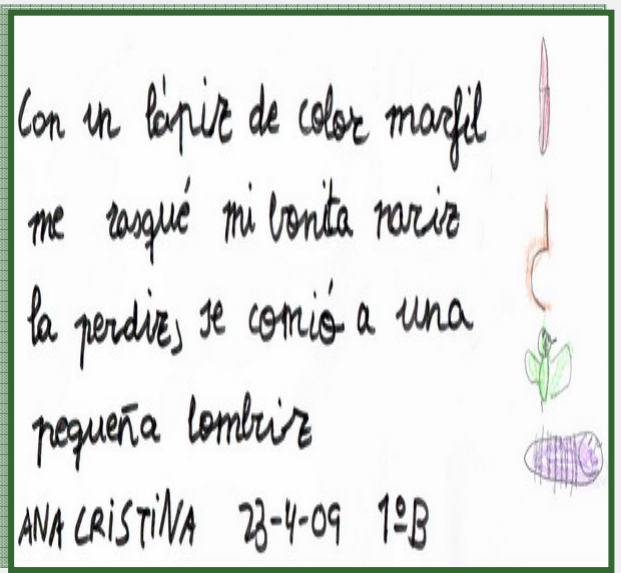 Con un lápiz de color marfil
me rasqué mi bonita nariz
la perdiz, se comió a una
pequeña lombriz
ANA CRISTINA 23-4-09 1ºB